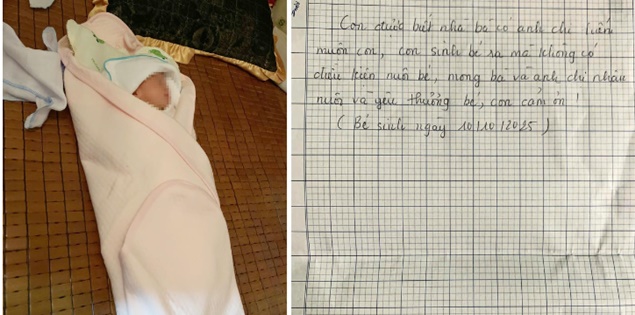 Con được biết nhà bà có anh chị hiếm
muộn con, con sinh bé ra mà không có
điều kiện nuôi bé, mong bà và anh chị nhận
nuôi và yêu thương bé, con cảm ơn!
(Bé sinh ngày 10/10/2025)